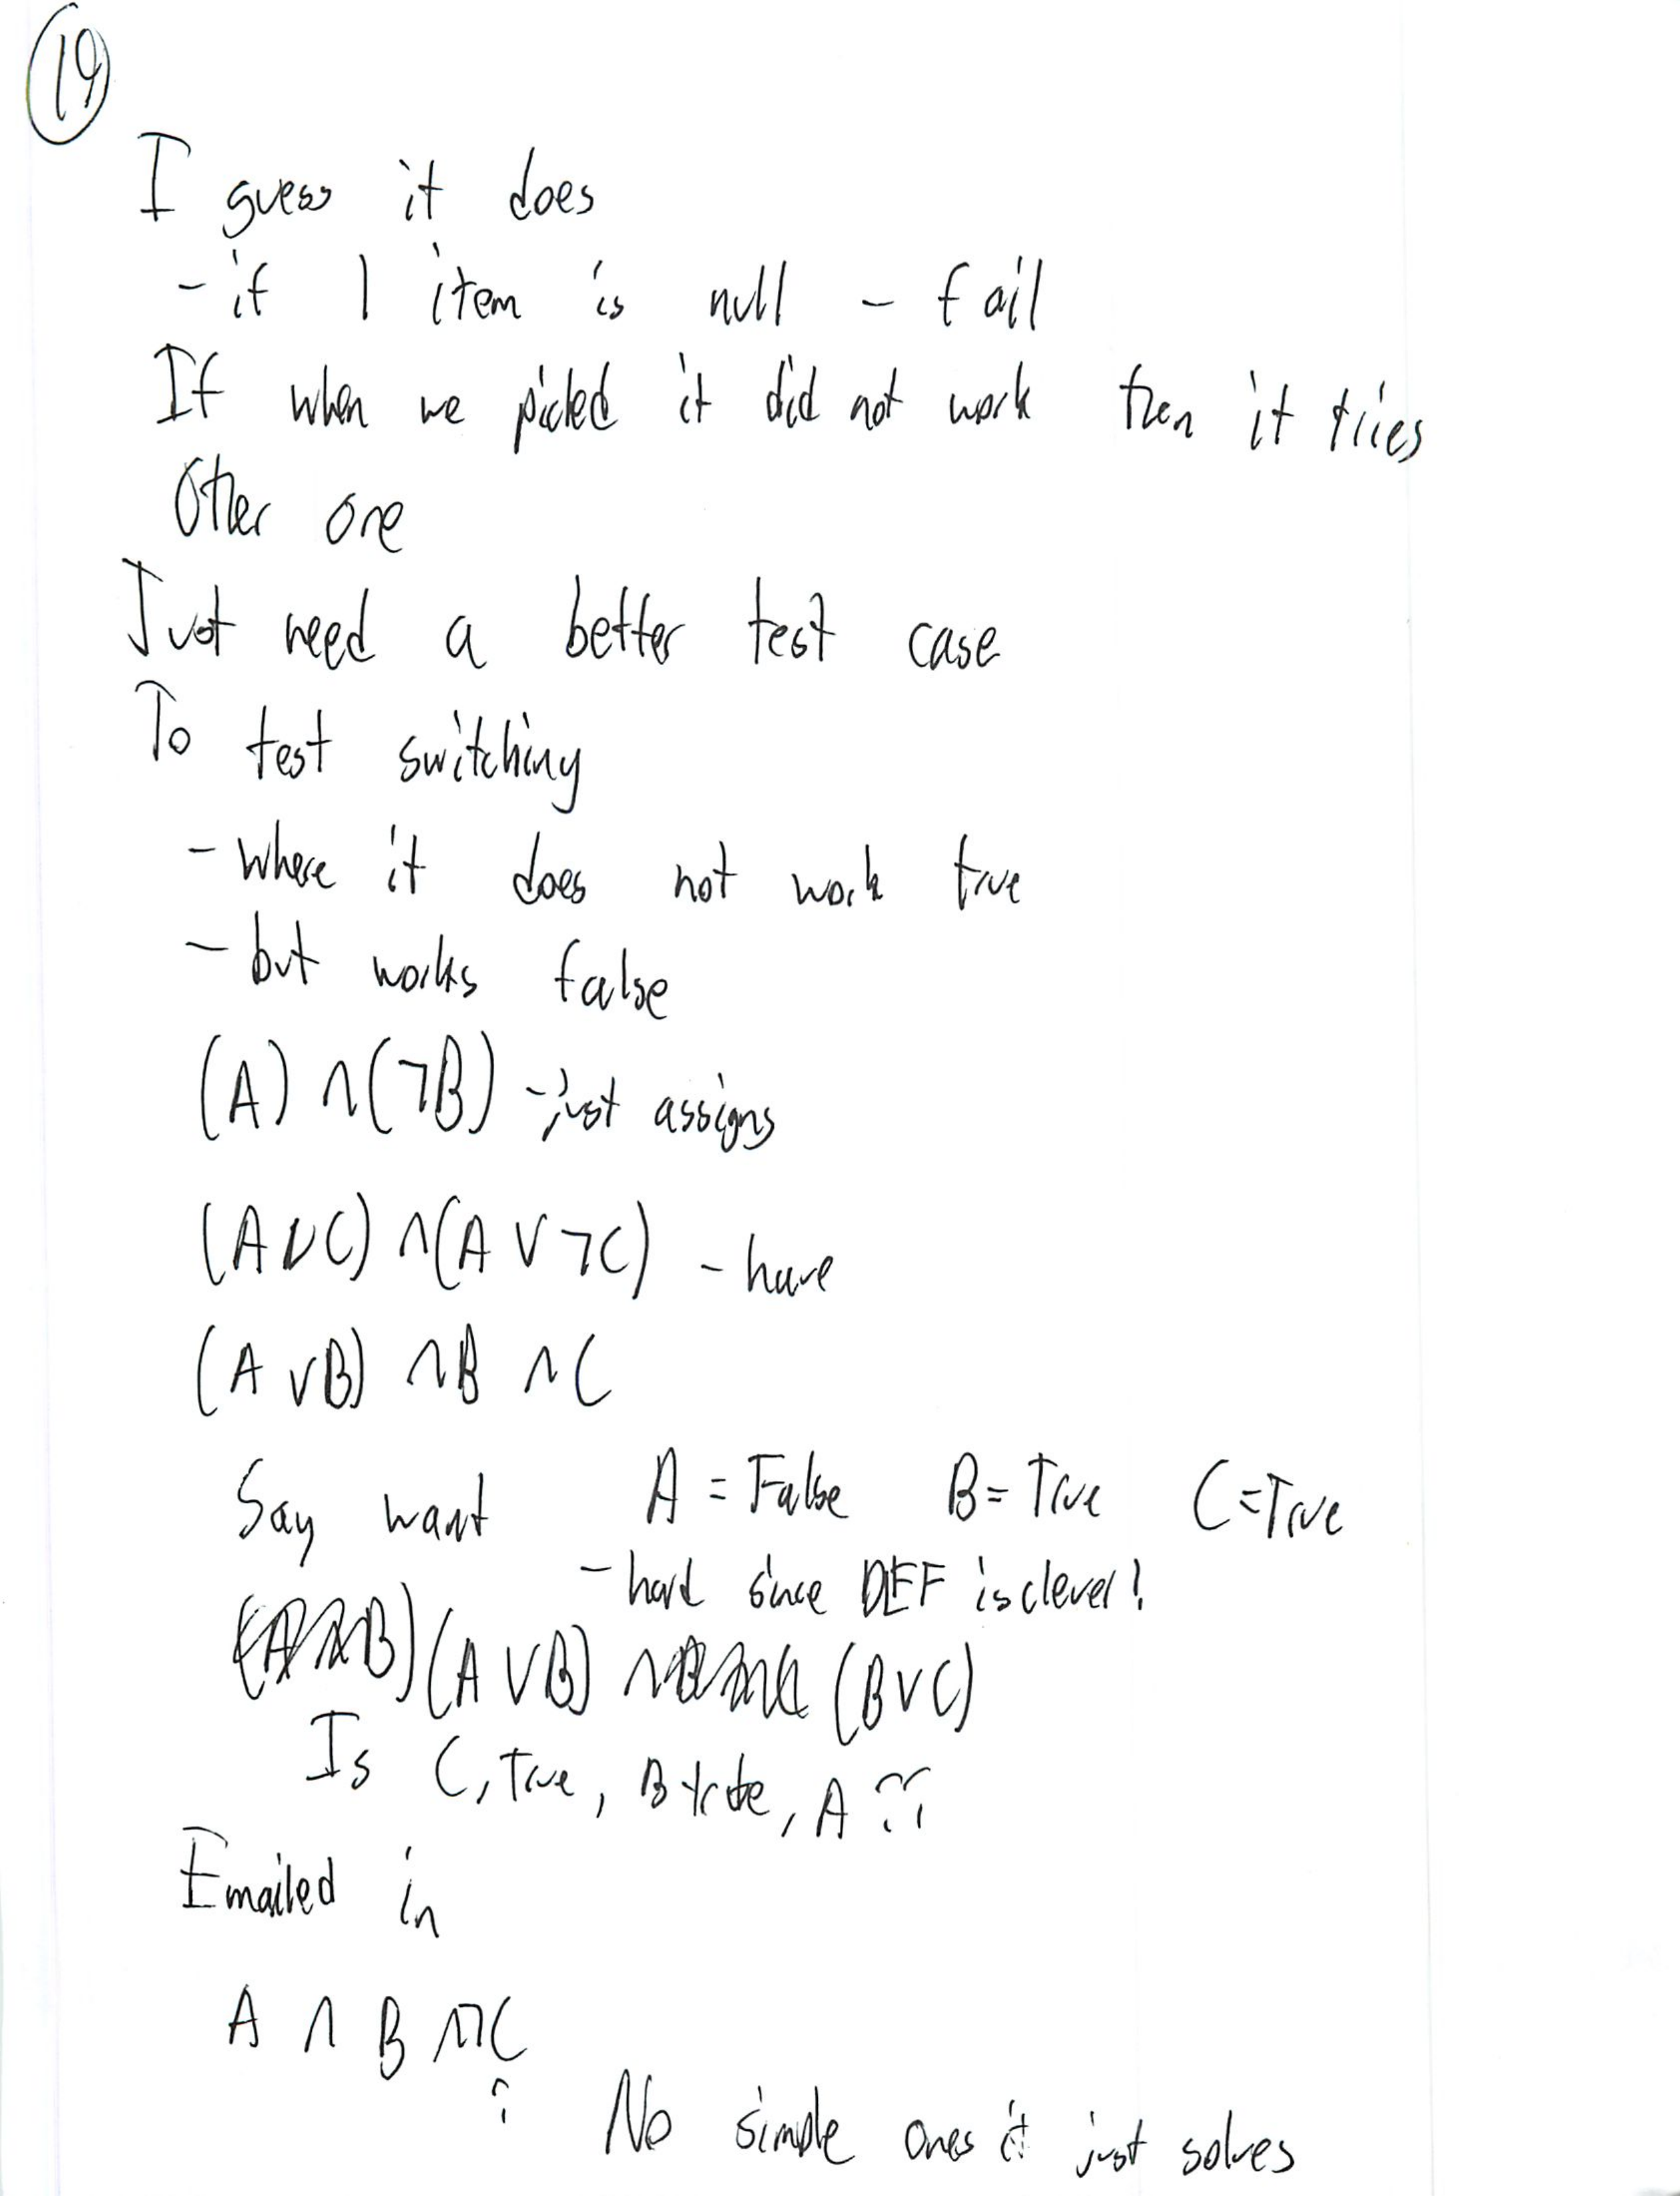 19
I guess it does
- if 1 item is null - fail
If when we picked it did not work then it tries
Other one
Just need a better test case
To test switching
- where it does not work true
- but works false
(A) ∧ (¬B) - just assigns
(A ∨ C) ∧ (A ∨ ¬C) - have
(A ∨ B) ∧ B ∧ C
Say want A = False B = True C = True
- hard since DEF is clever!
(A ∨ B) ∧ (B ∨ C)
Is C, True, B true, A ??
Emailed in
A ∧ B ∧ ¬C
?
No simple ones it just solves